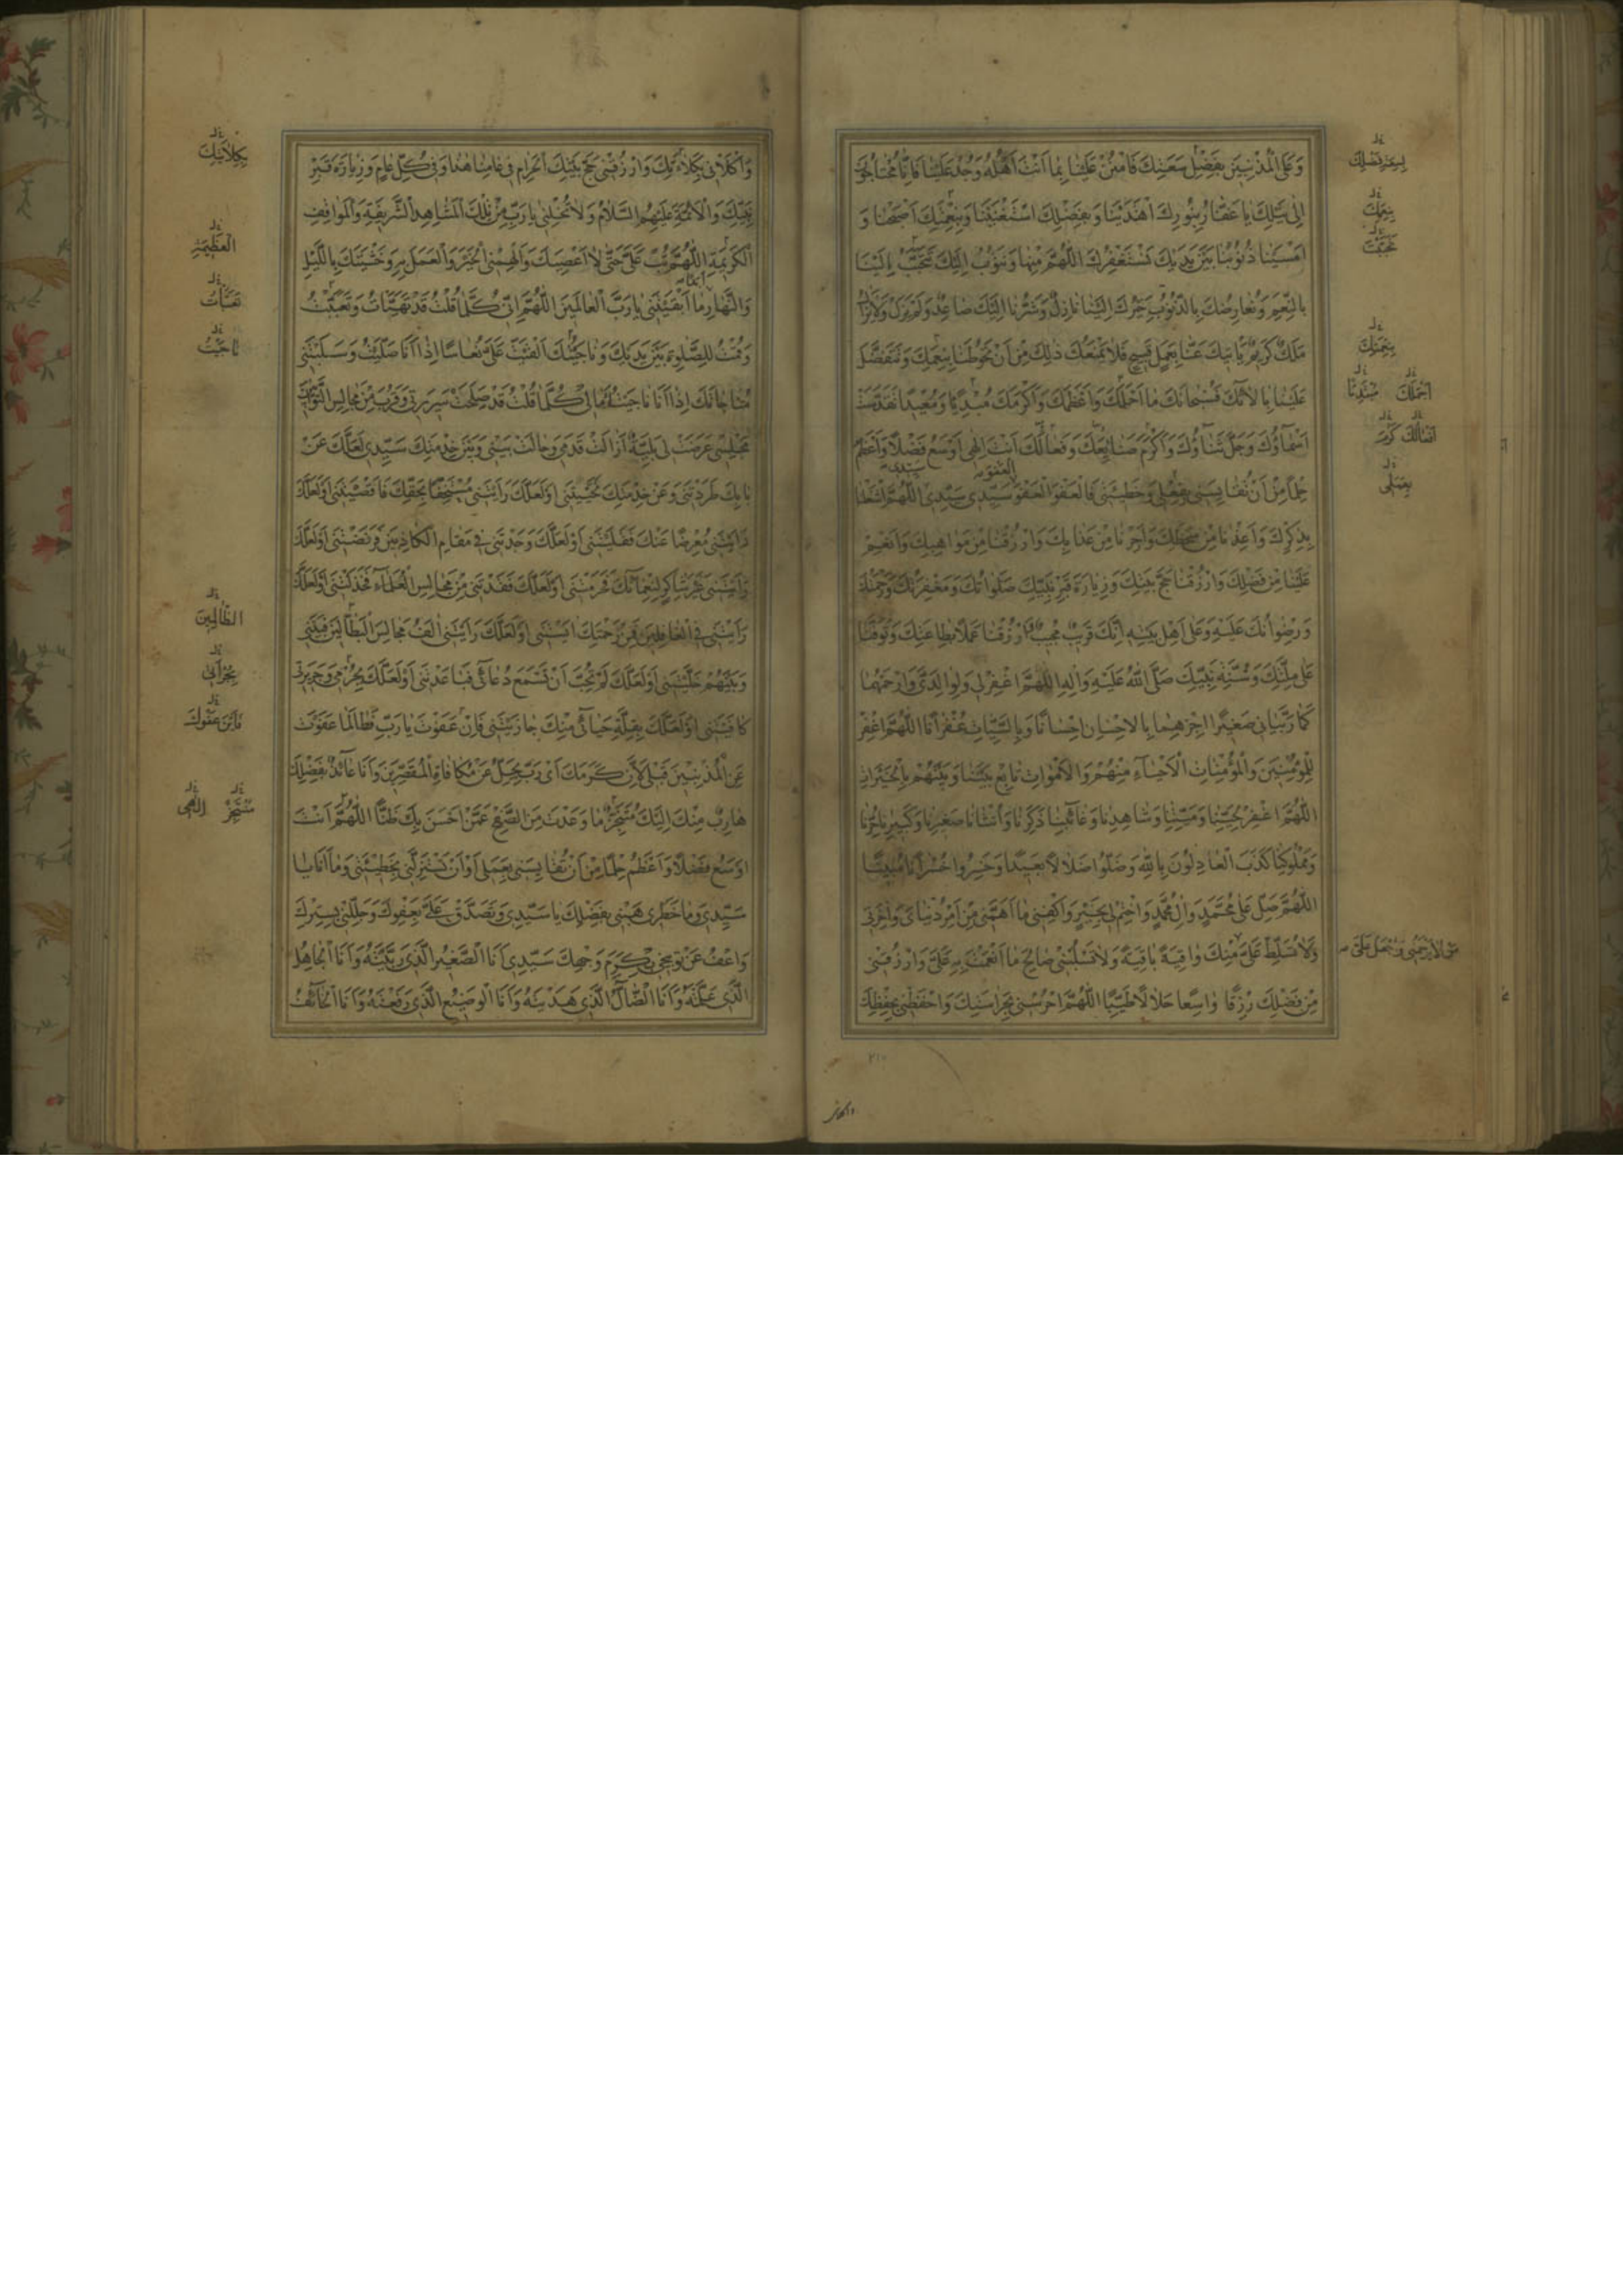 وَعَلَى الْمُذْنِبِينَ بِفَضْلِ سَعَتِكَ فَامْنُنْ عَلَيْنا بِما اَنْتَ اَهْلُهُ وَجُدْ عَلَيْنا فَاِنّا مُحْتاجُونَ
اِلى نَيْلِكَ يا غَفّارُ بِنُورِكَ اهْتَدَيْنا وَبِفَضْلِكَ اسْتَغْنَيْنا وَبِنِعْمَتِكَ اَصْبَحْنا وَ
اَمْسَيْنا ذُنُوبُنا بَيْنَ يَدَيْكَ نَسْتَغْفِرُكَ اللّهُمَّ مِنْها وَنَتُوبُ اِلَيْكَ تَتَحَبَّبُ اِلَيْنا
بِالنِّعَمِ وَنُعارِضُكَ بِالذُّنُوبِ خَيْرُكَ اِلَيْنا نازِلٌ وَشَرُّنا اِلَيْكَ صاعِدٌ وَلَمْ يَزَلْ وَلا يَزالُ
مَلَكٌ كَرِيمٌ يَأْتِيكَ عَنّا بِعَمَلٍ قَبِيحٍ فَلا يَمْنَعُكَ ذلِكَ مِنْ اَنْ تَحُوطَنا بِنِعَمِكَ وَتَتَفَضَّلَ
عَلَيْنا بِالائِكَ فَسُبْحانَكَ ما اَحْلَمَكَ وَاَعْظَمَكَ وَاَكْرَمَكَ مُبْدِئًا وَمُعِيدًا تَقَدَّسَتْ
اَسْماؤُكَ وَجَلَّ ثَناؤُكَ وَاَكْرَمَ صَنائِعَكَ وَفَعالَكَ اَنْتَ اِلهِى اَوْسَعُ فَضْلًا وَاَعْظَمُ
حِلْمًا مِنْ اَنْ تُقايِسَنِى بِفِعْلِى وَخَطِيئَتِى فَالْعَفْوَ الْعَفْوَ سَيِّدِى سَيِّدِى اللّهُمَّ اشْغَلْنا
بِذِكْرِكَ وَاَعِذْنا مِنْ سَخَطِكَ وَاَجِرْنا مِنْ عَذابِكَ وَارْزُقْنا مِنْ مَواهِبِكَ وَاَنْعِمْ
عَلَيْنا مِنْ فَضْلِكَ وَارْزُقْنا حَجَّ بَيْتِكَ وَزِيارَةَ قَبْرِ نَبِيِّكَ صَلَواتُكَ وَمَغْفِرَتُكَ وَرَحْمَتُكَ
وَرِضْوانُكَ عَلَيْهِ وَعَلى اَهْلِ بَيْتِهِ اِنَّكَ قَرِيبٌ مُجِيبٌ وَارْزُقْنا عَمَلًا بِطاعَتِكَ وَتَوَفَّنا
عَلى مِلَّتِكَ وَسُنَّةِ نَبِيِّكَ صَلَّى اللهُ عَلَيْهِ وَالِهِ اللّهُمَّ اغْفِرْ لِى وَلِوالِدَىَّ وَارْحَمْهُما
كَما رَبَّيانِى صَغِيرًا اجْزِهِما بِالْاِحْسانِ اِحْسانًا وَبِالسَّيِّئاتِ غُفْرانًا اللّهُمَّ اغْفِرْ
لِلْمُؤْمِنِينَ وَالْمُؤْمِناتِ الْاَحْياءِ مِنْهُمْ وَالْاَمْواتِ تابِعْ بَيْنَنا وَبَيْنَهُمْ بِالْخَيْراتِ
اللّهُمَّ اغْفِرْ لِحَيِّنا وَمَيِّتِنا وَشاهِدِنا وَغائِبِنا ذَكَرِنا وَاُنْثانا صَغِيرِنا وَكَبِيرِنا حُرِّنا
وَمَمْلُوكِنا كَذَبَ الْعادِلُونَ بِاللهِ وَضَلُّوا ضَلالًا بَعِيدًا وَخَسِرُوا خُسْرانًا مُبِينًا
اللّهُمَّ صَلِّ عَلى مُحَمَّدٍ وَالِ مُحَمَّدٍ وَاخْتِمْ لِى بِخَيْرٍ وَاكْفِنِى ما اَهَمَّنِى مِنْ اَمْرِ دُنْياىَ وَاخِرَتِى
وَلا تُسَلِّطْ عَلَىَّ مِنْكَ واقِيَةً باقِيَةً وَلا تَسْلُبْنِى صالِحَ ما اَنْعَمْتَ بِهِ عَلَىَّ وَارْزُقْنِى
مِنْ فَضْلِكَ رِزْقًا واسِعًا حَلالًا طَيِّبًا اللّهُمَّ احْرُسْنِى بِحَراسَتِكَ وَاحْفَظْنِى بِحِفْظِكَ
بِنِعَمِكَ
بِنِعْمَتِكَ
اَحْمَلَكَ
بِعَمَلِى
مَنْ لا يَرْحَمُنِى وَاجْعَلْ عَلَىَّ
٢١٠
وَاكْلَأْنِى بِكِلاءَتِكَ وَارْزُقْنِى حَجَّ بَيْتِكَ الْحَرامِ فِى عامِنا هذا وَفِى كُلِّ عامٍ وَزِيارَةَ قَبْرِ
نَبِيِّكَ وَالْاَئِمَّةِ عَلَيْهِمُ السَّلامُ وَلا تُخْلِنِى يا رَبِّ مِنْ تِلْكَ الْمَشاهِدِ الشَّرِيفَةِ وَالْمَواقِفِ
الْكَرِيمَةِ اللّهُمَّ تُبْ عَلَىَّ حَتّى لا اَعْصِيَكَ وَاَلْهِمْنِى الْخَيْرَ وَالْعَمَلَ بِهِ وَخَشْيَتَكَ بِاللَّيْلِ
وَالنَّهارِ ما اَبْقَيْتَنِى يا رَبَّ الْعالَمِينَ اللّهُمَّ اِنِّى كُلَّما قُلْتُ قَدْ تَهَيَّأْتُ وَتَعَبَّيْتُ
وَقُمْتُ لِلصَّلوةِ بَيْنَ يَدَيْكَ وَناجَيْتُكَ اَلْقَيْتَ عَلَىَّ نُعاسًا اِذا اَنَا صَلَّيْتُ وَسَلَبْتَنِى
مُناجاتَكَ اِذا اَنَا ناجَيْتُ مالِى كُلَّما قُلْتُ قَدْ صَلُحَتْ سَرِيرَتِى وَقَرُبَ مِنْ مَجالِسِ التَّوّابِينَ
مَجْلِسِى عَرَضَتْ لِى بَلِيَّةٌ اَزالَتْ قَدَمِى وَحالَتْ بَيْنِى وَبَيْنَ خِدْمَتِكَ سَيِّدِى لَعَلَّكَ عَنْ
بابِكَ طَرَدْتَنِى وَعَنْ خِدْمَتِكَ نَحَّيْتَنِى اَوْ لَعَلَّكَ رَاَيْتَنِى مُسْتَخِفًّا بِحَقِّكَ فَاَقْصَيْتَنِى اَوْ لَعَلَّكَ
رَاَيْتَنِى مُعْرِضًا عَنْكَ فَقَلَيْتَنِى اَوْ لَعَلَّكَ وَجَدْتَنِى فِى مَقامِ الْكاذِبِينَ فَرَفَضْتَنِى اَوْ لَعَلَّكَ
رَاَيْتَنِى غَيْرَ شاكِرٍ لِنَعْمائِكَ فَحَرَمْتَنِى اَوْ لَعَلَّكَ فَقَدْتَنِى مِنْ مَجالِسِ الْعُلَماءِ فَخَذَلْتَنِى اَوْ لَعَلَّكَ
رَاَيْتَنِى فِى الْغافِلِينَ فَمِنْ رَحْمَتِكَ ايَسْتَنِى اَوْ لَعَلَّكَ رَاَيْتَنِى الَفُ مَجالِسَ الْبَطّالِينَ فَبَيْنِى
وَبَيْنَهُمْ خَلَّيْتَنِى اَوْ لَعَلَّكَ لَمْ تُحِبَّ اَنْ تَسْمَعَ دُعائِى فَباعَدْتَنِى اَوْ لَعَلَّكَ بِجُرْمِى وَجَرِيرَتِى
كافَيْتَنِى اَوْ لَعَلَّكَ بِقِلَّةِ حَيائِى مِنْكَ جازَيْتَنِى فَاِنْ عَفَوْتَ يا رَبِّ فَطالَما عَفَوْتَ
عَنِ الْمُذْنِبِينَ قَبْلِى لِاَنَّ كَرَمَكَ اَىْ رَبِّ يَجِلُّ عَنْ مُكافاةِ الْمُقَصِّرِينَ وَاَنَا عائِذٌ بِفَضْلِكَ
هارِبٌ مِنْكَ اِلَيْكَ مُتَنَجِّزٌ ما وَعَدْتَ مِنَ الصَّفْحِ عَمَّنْ اَحْسَنَ بِكَ ظَنًّا اللّهُمَّ اَنْتَ
اَوْسَعُ فَضْلًا وَاَعْظَمُ حِلْمًا مِنْ اَنْ تُقايِسَنِى بِعَمَلِى اَوْ اَنْ تَسْتَزِلَّنِى بِخَطِيئَتِى وَما اَنَا يا
سَيِّدِى وَما خَطَرِى هَبْنِى بِفَضْلِكَ يا سَيِّدِى وَتَصَدَّقْ عَلَىَّ بِعَفْوِكَ وَجَلِّلْنِى بِسِتْرِكَ
وَاعْفُ عَنْ تَوْبِيخِى بِكَرَمِ وَجْهِكَ سَيِّدِى اَنَا الصَّغِيرُ الَّذِى رَبَّيْتَهُ وَاَنَا الْجاهِلُ
الَّذِى عَلَّمْتَهُ وَاَنَا الضّالُّ الَّذِى هَدَيْتَهُ وَاَنَا الْوَضِيعُ الَّذِى رَفَعْتَهُ وَاَنَا الْخائِفُ
بِكِلايَتِكَ
الْعَظِيمَةِ
تَعَبَّأْتُ
ناجَيْتُ
الظّالِمِينَ
فَاَيْنَ عَفْوُكَ
مُتَنَجِّزٌ
اِلهِى